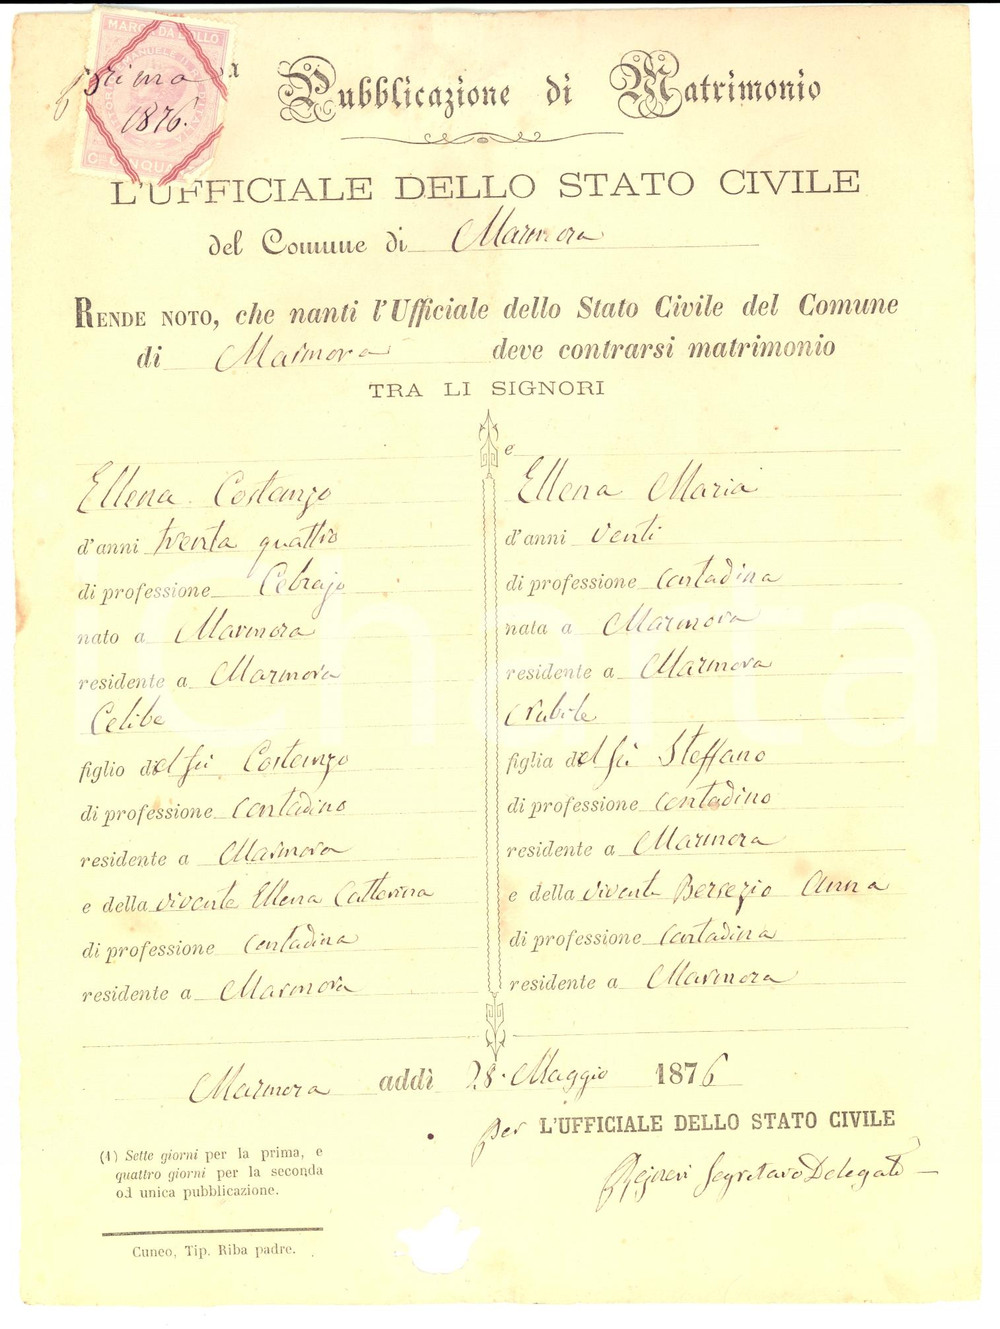 MARCA DA BOLLO
prima
1876.
Pubblicazione di Matrimonio
L'UFFICIALE DELLO STATO CIVILE
del Comune di Marmora
RENDE NOTO, che nanti l'Ufficiale dello Stato Civile del Comune
di Marmora deve contrarsi matrimonio
TRA LI SIGNORI
e
Ellena Costanzo
d'anni trenta quattro
di professione Cebrajo
nato a Marmora
residente a Marmora
Celibe
figlio del fu Costanzo
di professione contadino
residente a Marmora
e della vivente Ellena Catterina
di professione contadina
residente a Marmora
Ellena Maria
d'anni venti
di professione contadina
nata a Marmora
residente a Marmora
Nubile
figlia del fu Steffano
di professione contadino
residente a Marmora
e della vivente Bersezio Anna
di professione contadina
residente a Marmora
Marmora addì 28 Maggio 1876
per L'UFFICIALE DELLO STATO CIVILE
Segretaro Delegato
(1) Sette giorni per la prima, e
quattro giorni per la seconda
od unica pubblicazione.
Cuneo, Tip. Riba padre.